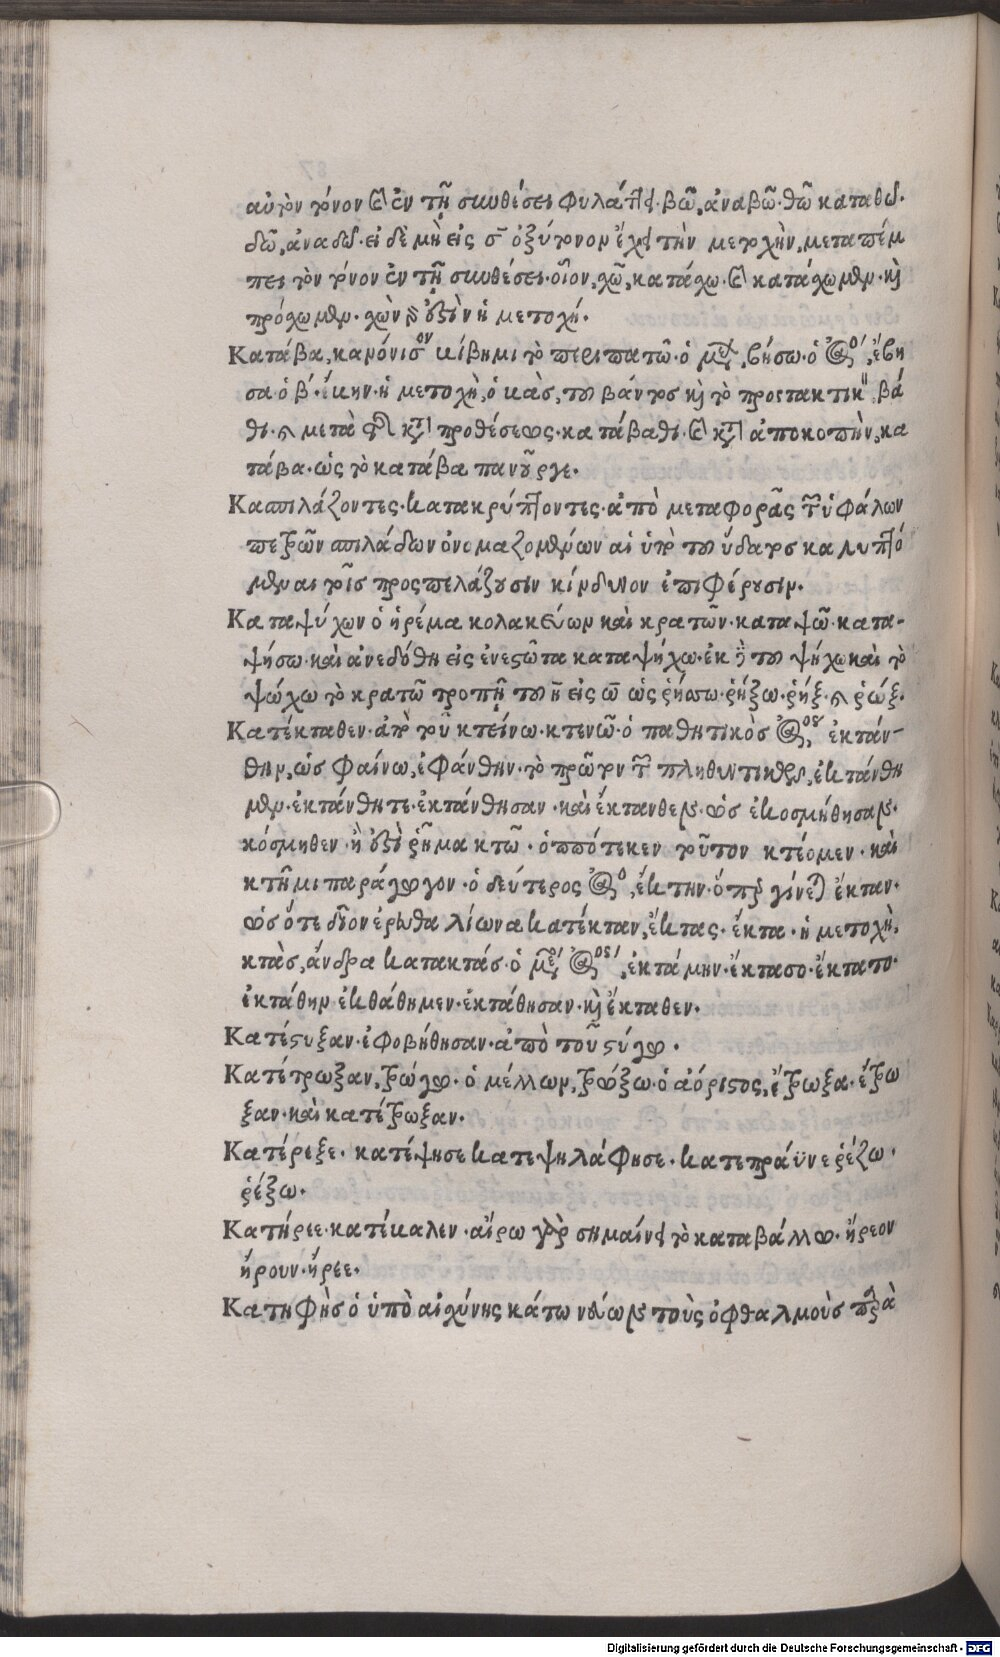 αὐτὸν τόνον καὶ ἐν τῇ συνθέσει φυλάττει. βῶ, ἀναβῶ. θῶ καταθῶ.
δῶ, ἀναδῶ. εἰ δὲ μὴ εἰς ς ὀξύτονον ἔχει τὴν μετοχὴν, μεταπέμ
πει τὸν τόνον ἐν τῇ συνθέσει. οἷον, χῶ, κατάχω. καὶ κατάχωμεν. καὶ
πρόχωμεν. χὼν γάρ ἐστὶν ἡ μετοχή.
Κατάβα, κανόνισον κίβημι τὸ περιπατῶ. ὁ μέλλων, βήσω. ὁ ἀόριστος, ἔβη
σα. ὁ β΄. ἔβην. ἡ μετοχὴ, ὁ βὰς, τοῦ βάντος καὶ τὸ προστακτικὸν βᾶ
θι. καὶ μετὰ τῆς κατὰ προθέσεως. κατάβαθι. καὶ κατὰ ἀποκοπὴν, κα
τάβα. ὡς τὸ κατάβα πανοῦργε.
Κασπιλάζοντες. κατακρύπτοντες. ἀπὸ μεταφορᾶς τῶν ὑφάλων
πετρῶν σπιλάδων ὀνομαζομένων αἱ ὑπὸ τοῦ ὕδατος καλυπτό
μεναι τοῖς προσπελάζουσιν κίνδυνον ἐπιφέρουσιν.
Καταψύχων ὁ ἠρέμα κολακεύων καὶ κρατῶν. καταψῶ. κατα-
ψήσω. καὶ ἀνεδόθη εἰς ἐνεστῶτα καταψήχω. ἐκ δὲ τοῦ ψήχω καὶ τὸ
ψώχω τὸ κρατῶ τροπῇ τοῦ η εἰς ω ὡς ῥήσσω. ῥήξω. ῥήξ. καὶ ῥώξ.
Κατέκταθεν. ἀπὸ τοῦ κτείνω. κτενῶ. ὁ παθητικὸς ἀόριστος ἐκτάν-
θην, ὡς φαίνω, ἐφάνθην. τὸ πρῶτον τῶν πληθυντικῶν, ἐκτάνθη
μεν. ἐκτάνθητε. ἐκτάνθησαν. καὶ ἔκτανθεν. ὡς ἐκοσμήθησαν.
κόσμηθεν. ἢ ἐστὶ ῥῆμα κτῶ. ὁππότεκεν τοῦτον κτέομεν. καὶ
κτῆμι παράγωγον. ὁ δεύτερος ἀόριστος, ἔκτην. ὅπερ γίνεται ἔκταν.
ὡς ὅτε δῖον ἐρευθαλίωνα κατέκταν, ἔκτας. ἔκτα. ἡ μετοχὴ.
κτὰς, ἄνδρα κατακτάς. ὁ μέσος ἀόριστος, ἐκτάμην. ἔκτασο. ἔκτατο.
ἐκτάθην ἐκθάθημεν. ἐκτάθησαν. καὶ ἔκταθεν.
Κατέστυξαν. ἐφοβήθησαν. ἀπὸ τοῦ στύγω.
Κατέτρωξαν, τρώγω. ὁ μέλλων, τρώξω. ὁ ἀόριστος, ἔτρωξα. ἔτρω
ξαν. καὶ κατέτρωξαν.
Κατέρεξε. κατέψησε κατεψηλάφησε. κατεπράϋνε ῥέζω.
ῥέξω.
Κατήρεε. κατέκαλεν. αἴρω γὰρ σημαίνει τὸ καταβάλλω. ἤρεον
ἤρουν. ἤρεε.
Κατηφὴς ὁ ὑπὸ αἰσχύνης κάτω νεύων τοὺς ὀφθαλμοὺς παρὰ
Digitalisierung gefördert durch die Deutsche Forschungsgemeinschaft - DFG